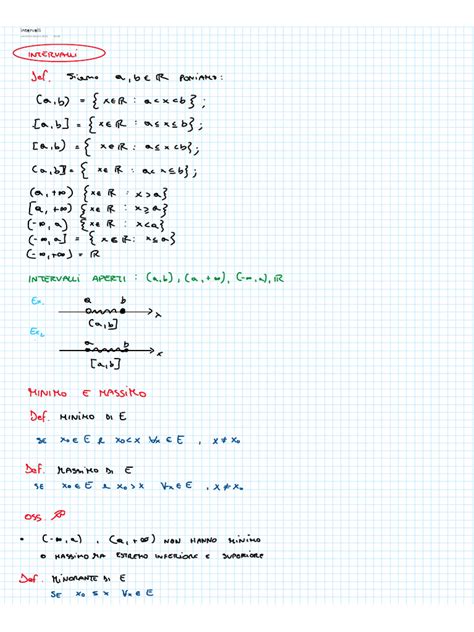 Intervalli
INTERVALLI
Def. Siano a, b ∈ ℝ PONIAMO:
(a, b) = { x ∈ ℝ : a < x < b } ;
[a, b] = { x ∈ ℝ : a ≤ x ≤ b } ;
[a, b) = { x ∈ ℝ : a ≤ x < b } ;
(a, b] = { x ∈ ℝ : a < x ≤ b } ;
(a, +∞) { x ∈ ℝ : x > a }
[a, +∞) { x ∈ ℝ : x ≥ a }
(-∞, a) { x ∈ ℝ : x < a }
(-∞, a] = { x ∈ ℝ : x ≤ a }
(-∞, +∞) = ℝ
INTERVALLI APERTI : (a, b), (a, +∞), (-∞, a), ℝ
Ex.
a b
x
(a, b]
Ex.
a b
x
[a, b]
MINIMO E MASSIMO
Def. MINIMO DI E
SE x₀ ∈ E e x₀ < x ∀x ∈ E , x ≠ x₀
Def. MASSIMO DI E
SE x₀ ∈ E e x₀ > x ∀x ∈ E , x ≠ x₀
OSS.
• (-∞, a) , (a, +∞) NON HANNO MINIMO
O MASSIMO MA ESTREMO INFERIORE E SUPERIORE
Def. MINORANTE DI E
SE x₀ ≤ x ∀x ∈ E